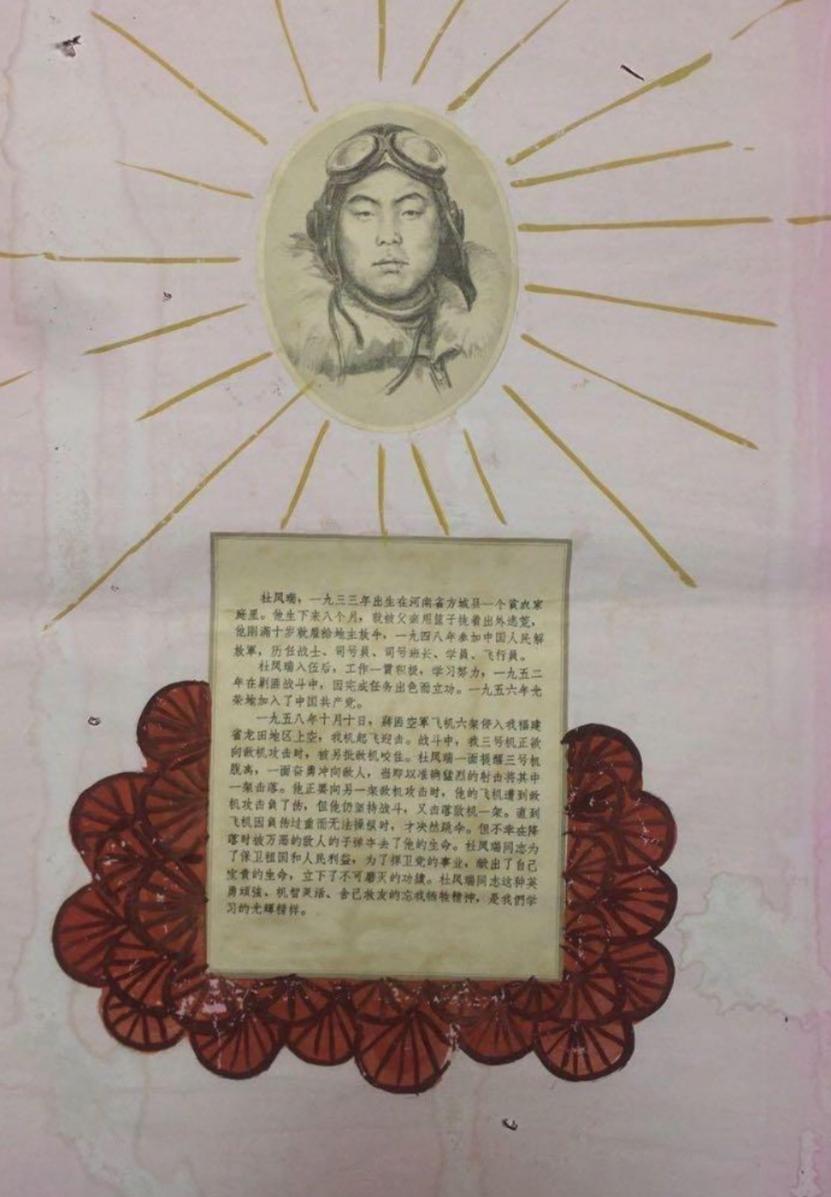 杜凤瑞，一九三三年出生在河南省方城县一个贫农家
庭里。他生下来八个月，就被父亲用篮子挑着出外逃荒，
他刚满十岁就雇给地主放牛，一九四八年参加中国人民解
放軍，历任战士、司号員、司号班长、学員、飞行員。
杜凤瑞入伍后，工作一貫积极，学习努力，一九五二
年在剿匪战斗中，因完成任务出色而立功。一九五六年光
荣地加入了中国共产党。
一九五八年十月十日，蔣匪空軍飞机六架侵入我福建
省龙田地区上空，我机起飞迎击。战斗中，我三号机正欲
向敌机攻击时，被另批敌机咬住。杜凤瑞一面提醒三号机
脫离，一面奋勇冲向敌人，当即以准确猛烈的射击将其中
一架击落。他正要向另一架敌机攻击时，他的飞机遭到敌
机攻击負了伤，但他仍坚持战斗，又击落敌机一架。直到
飞机因負伤过重而无法操纵时，才决然跳伞。但不幸在降
落时被万恶的敌人的子弹夺去了他的生命。杜凤瑞同志为
了保卫祖国和人民利益，为了捍卫党的事业，献出了自己
宝貴的生命，立下了不可磨灭的功績。杜凤瑞同志这种英
勇頑強、机智灵活、舍己救友的忘我牺牲精神，是我們学
习的光輝榜样。